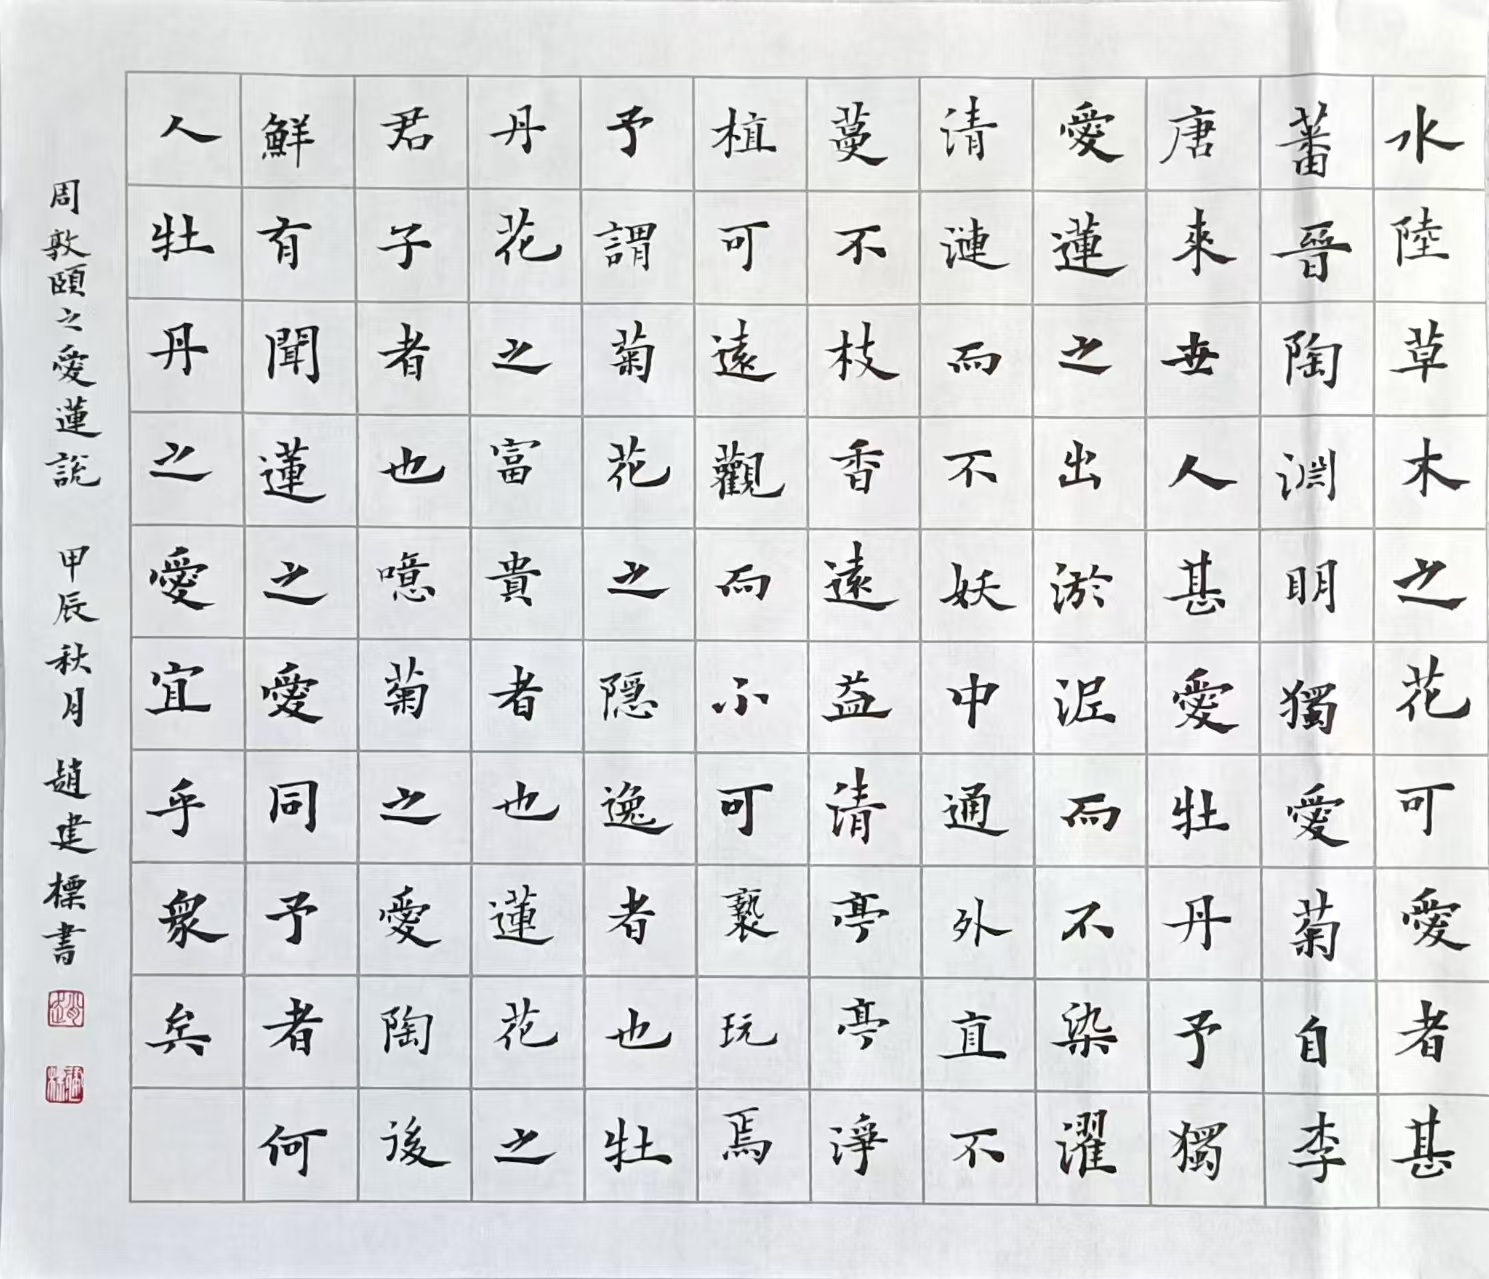 水陸草木之花可愛者甚
蕃晉陶淵明獨愛菊自李
唐來世人甚愛牡丹予獨
愛蓮之出淤泥而不染濯
清漣而不妖中通外直不
蔓不枝香遠益清亭亭淨
植可遠觀而不可褻玩焉
予謂菊花之隱逸者也牡
丹花之富貴者也蓮花之
君子者也噫菊之愛陶後
鮮有聞蓮之愛同予者何
人牡丹之愛宜乎衆矣
周敦頤之愛蓮說 甲辰秋月 趙建標書